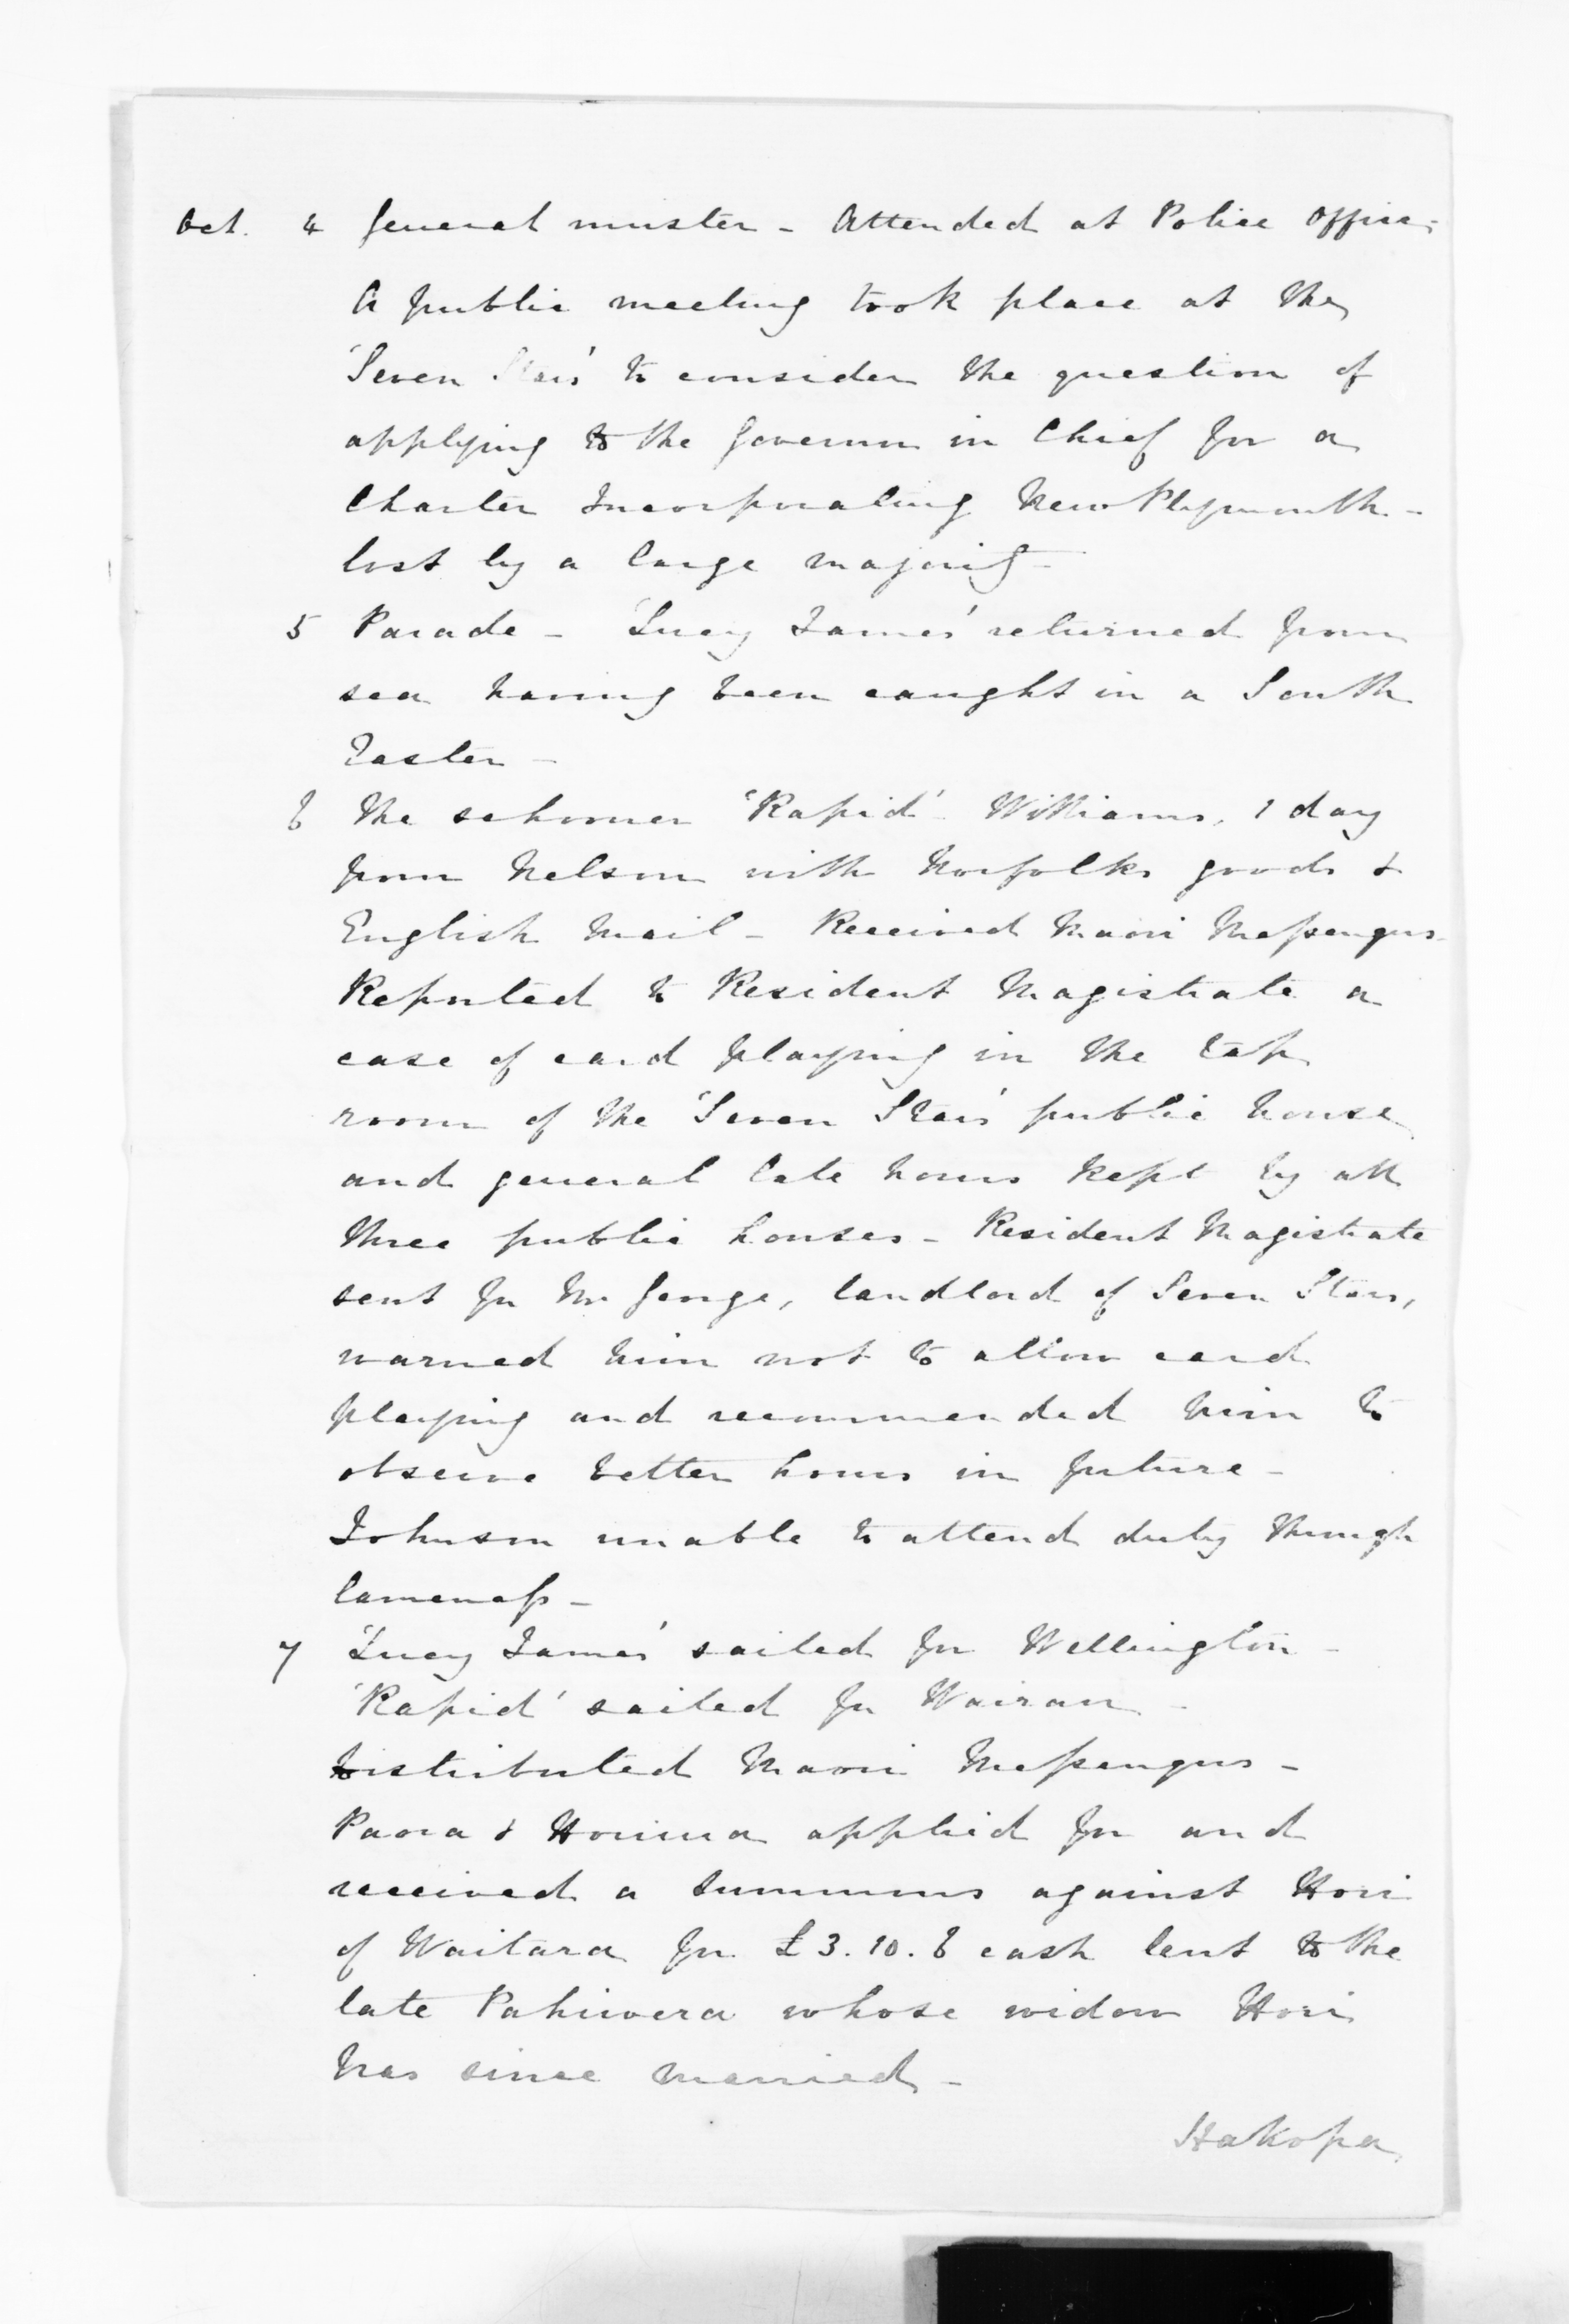 Oct. 4 General muster - Attended at Police Office -
A public meeting took place at the
'Seven Stars' to consider the question of
applying to the Governor in Chief for a
Charter Incorporating New Plymouth -
lost by a large majority -
5 Parade - 'Lucy James' returned from
sea having been caught in a South
Easter -
6 The schooner 'Rapid' Williams, 1 day
from Nelson with Norfolks goods &
English Mail - Received Maori Messengers -
Reported to Resident Magistrate a
case of card playing in the tap
room of the 'Seven Stars' public house
and general late hours kept by all
three public houses - Resident Magistrate
sent for Mr George, landlord of Seven Stars,
warned him not to allow card
playing and recommended him to
observe better hours in future -
Johnson unable to attend duty through
lameness -
7 'Lucy James' sailed for Wellington -
'Rapid' sailed for Wairau -
Distributed Maori Messengers -
Paora & Honiua applied for and
received a summons against Hori
of Waitara for £3.10.6 cash lent to the
late Pahiwera whose widow Hori
has since married -
Hakopa